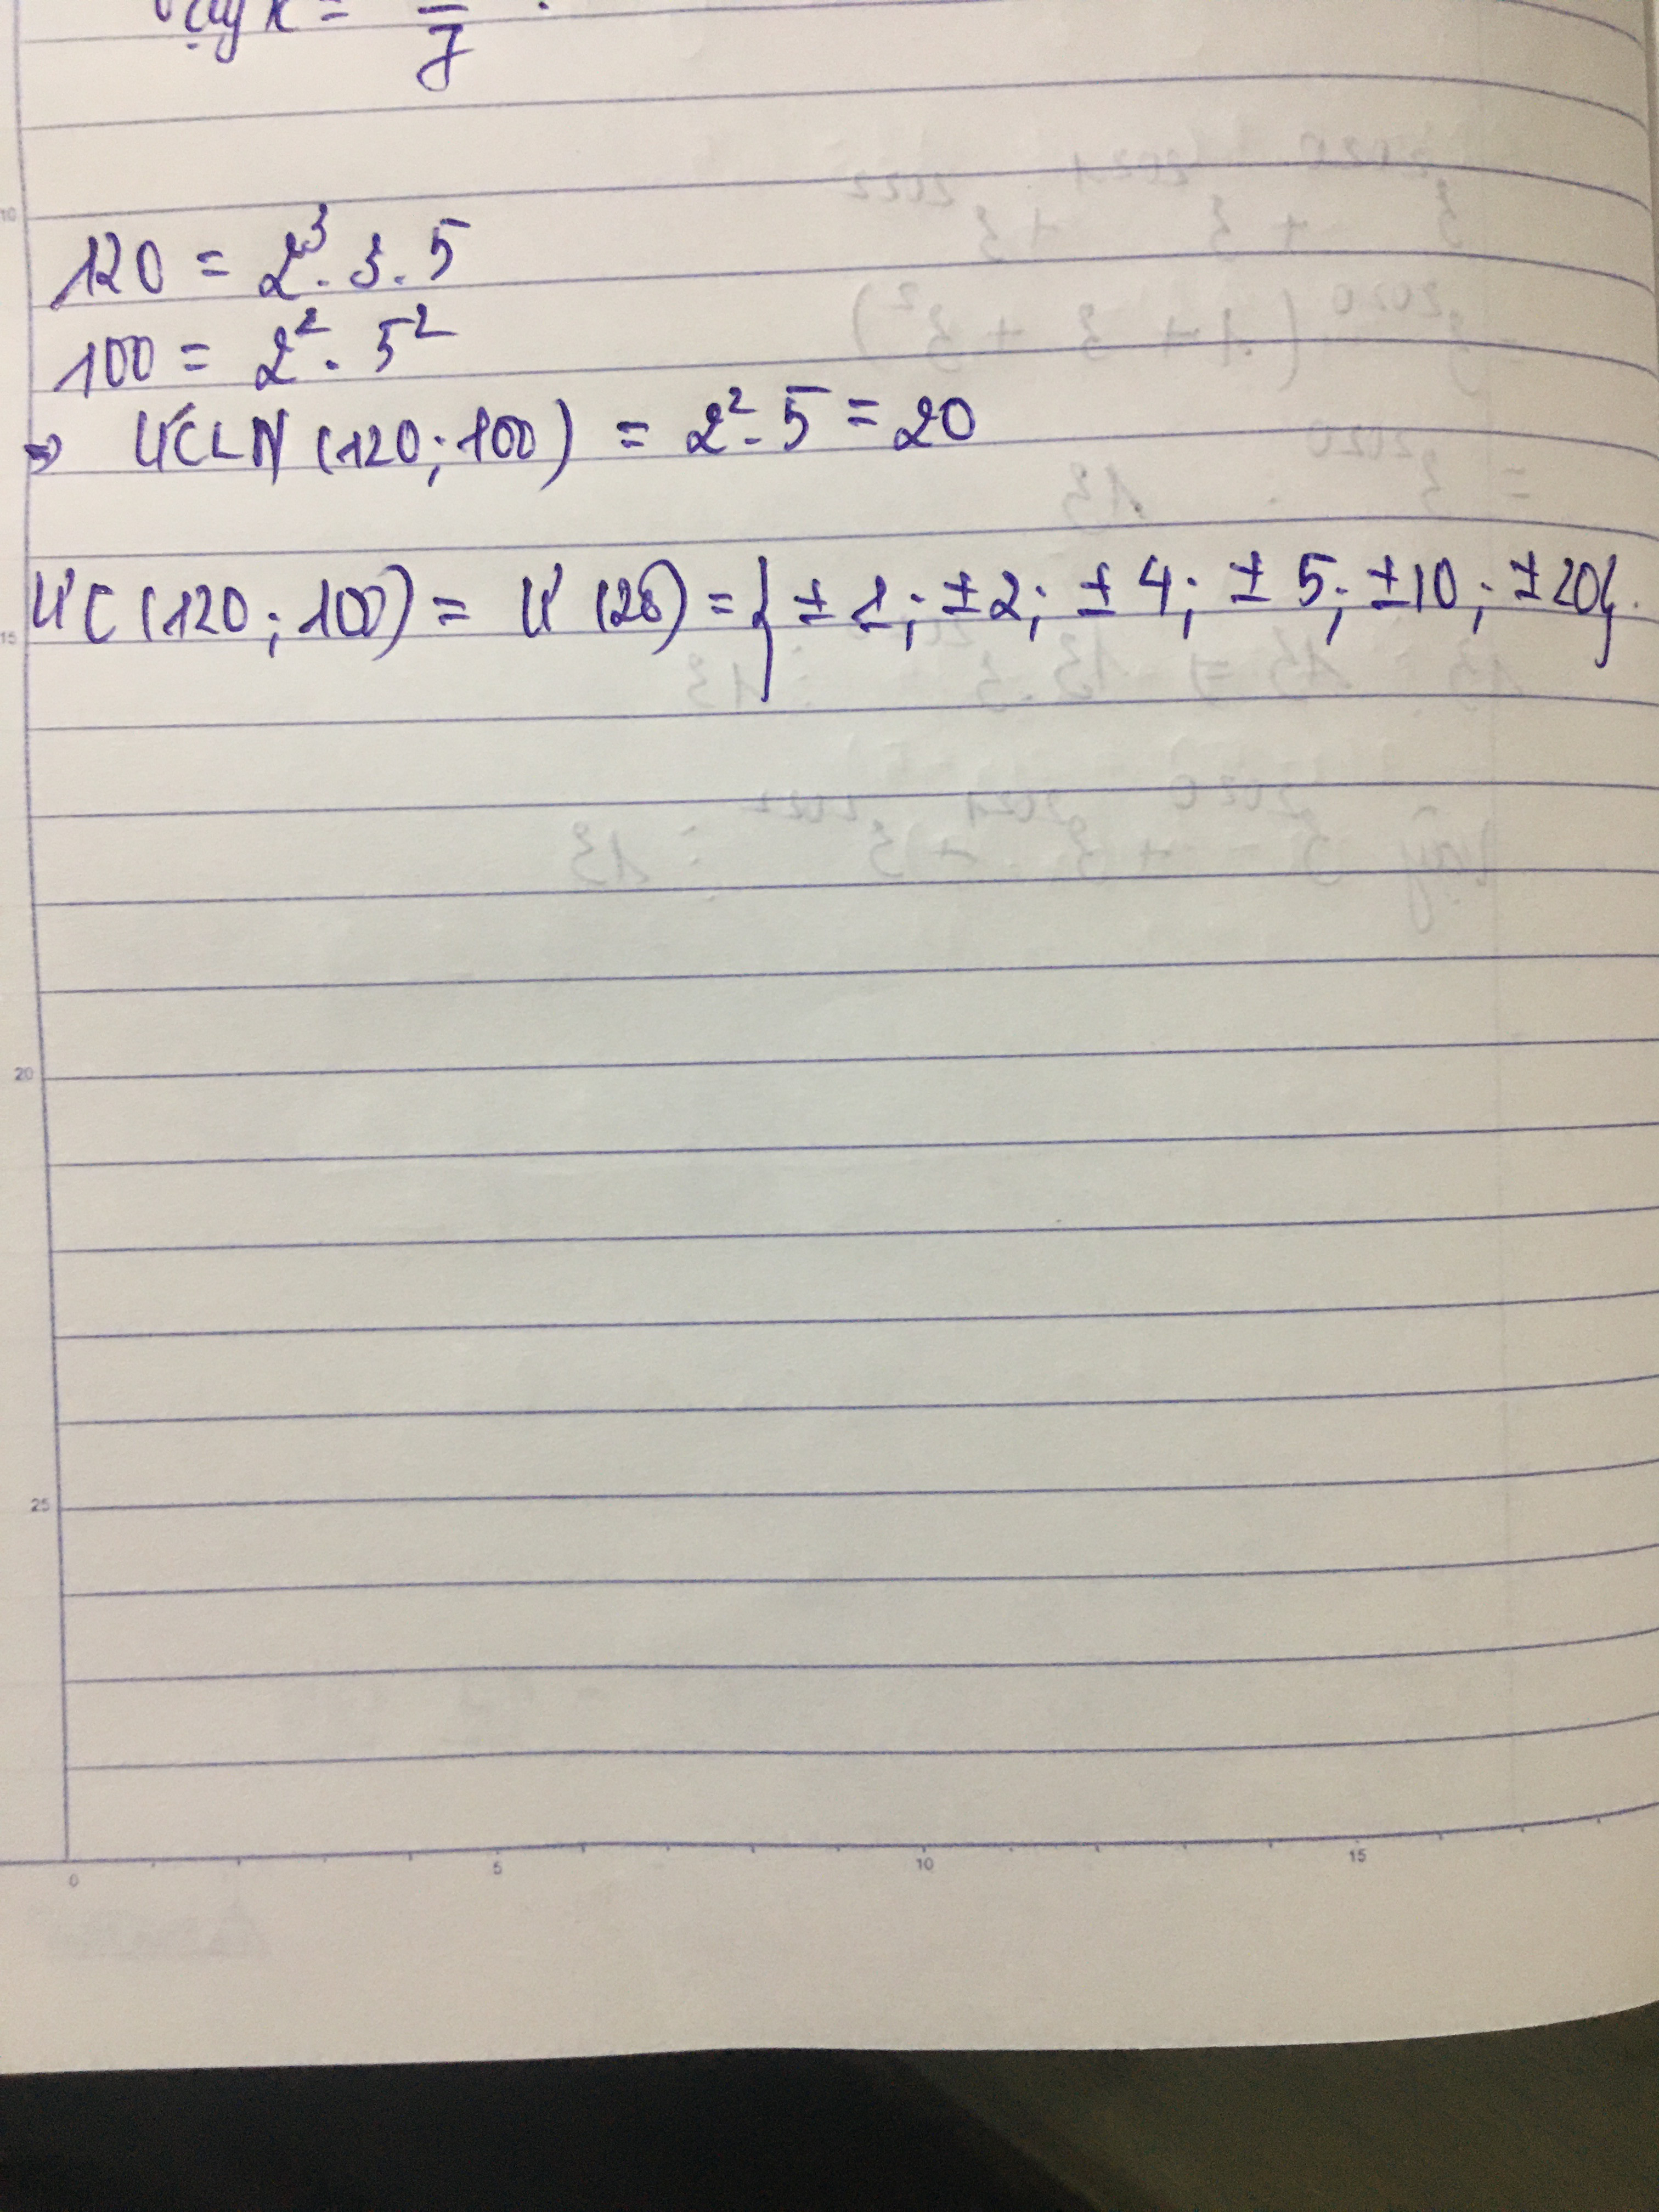 Vậy x = — 7 .
120 = 2³ . 3 . 5
100 = 2² . 5²
⇒ ƯCLN (120 ; 100) = 2² . 5 = 20
ƯC (120 ; 100) = Ư (20) = { ± 1 ; ± 2 ; ± 4 ; ± 5 ; ± 10 ; ± 20 } .
10
15
20
25
0 5 10 15